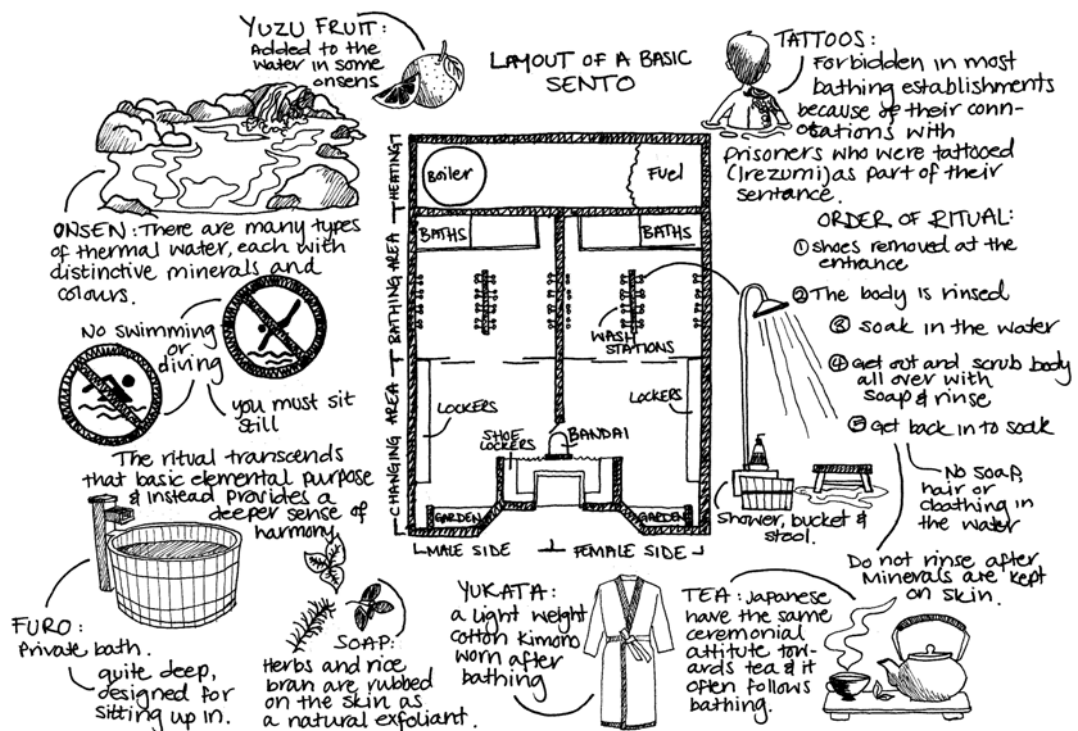 YUZU FRUIT:
Added to the
water in some
onsens
LAYOUT OF A BASIC
SENTO
TATTOOS:
Forbidden in most
bathing establishments
because of their conn-
otations with
prisoners who were tattooed
(Irezumi) as part of their
sentance.
ONSEN: There are many types
of thermal water, each with
distinctive minerals and
colours.
No swimming
or
diving
you must sit
still
The ritual transcends
that basic elemental purpose
& instead provides a
deeper sense of
harmony
FURO:
Private bath.
quite deep,
designed for
sitting up in.
SOAP:
Herbs and rice
bran are rubbed
on the skin as
a natural exfoliant.
HEATING
BATHING AREA
CHANGING AREA
Boiler
Fuel
BATHS
BATHS
WASH
STATIONS
LOCKERS
LOCKERS
SHOE
LOCKERS
BANDAI
GARDEN
GARDEN
MALE SIDE
FEMALE SIDE
ORDER OF RITUAL:
① shoes removed at the
entrance
② The body is rinsed
③ soak in the water
④ Get out and scrub body
all over with
soap & rinse
⑤ Get back in to soak
No soap,
hair or
cloathing in
the water
Do not rinse after
Minerals are kept
on skin.
Shower, bucket &
stool.
YUKATA:
a light weight
cotton kimono
worn after
bathing
TEA: Japanese
have the same
ceremonial
attitude tow-
ards tea & it
often follows
bathing.